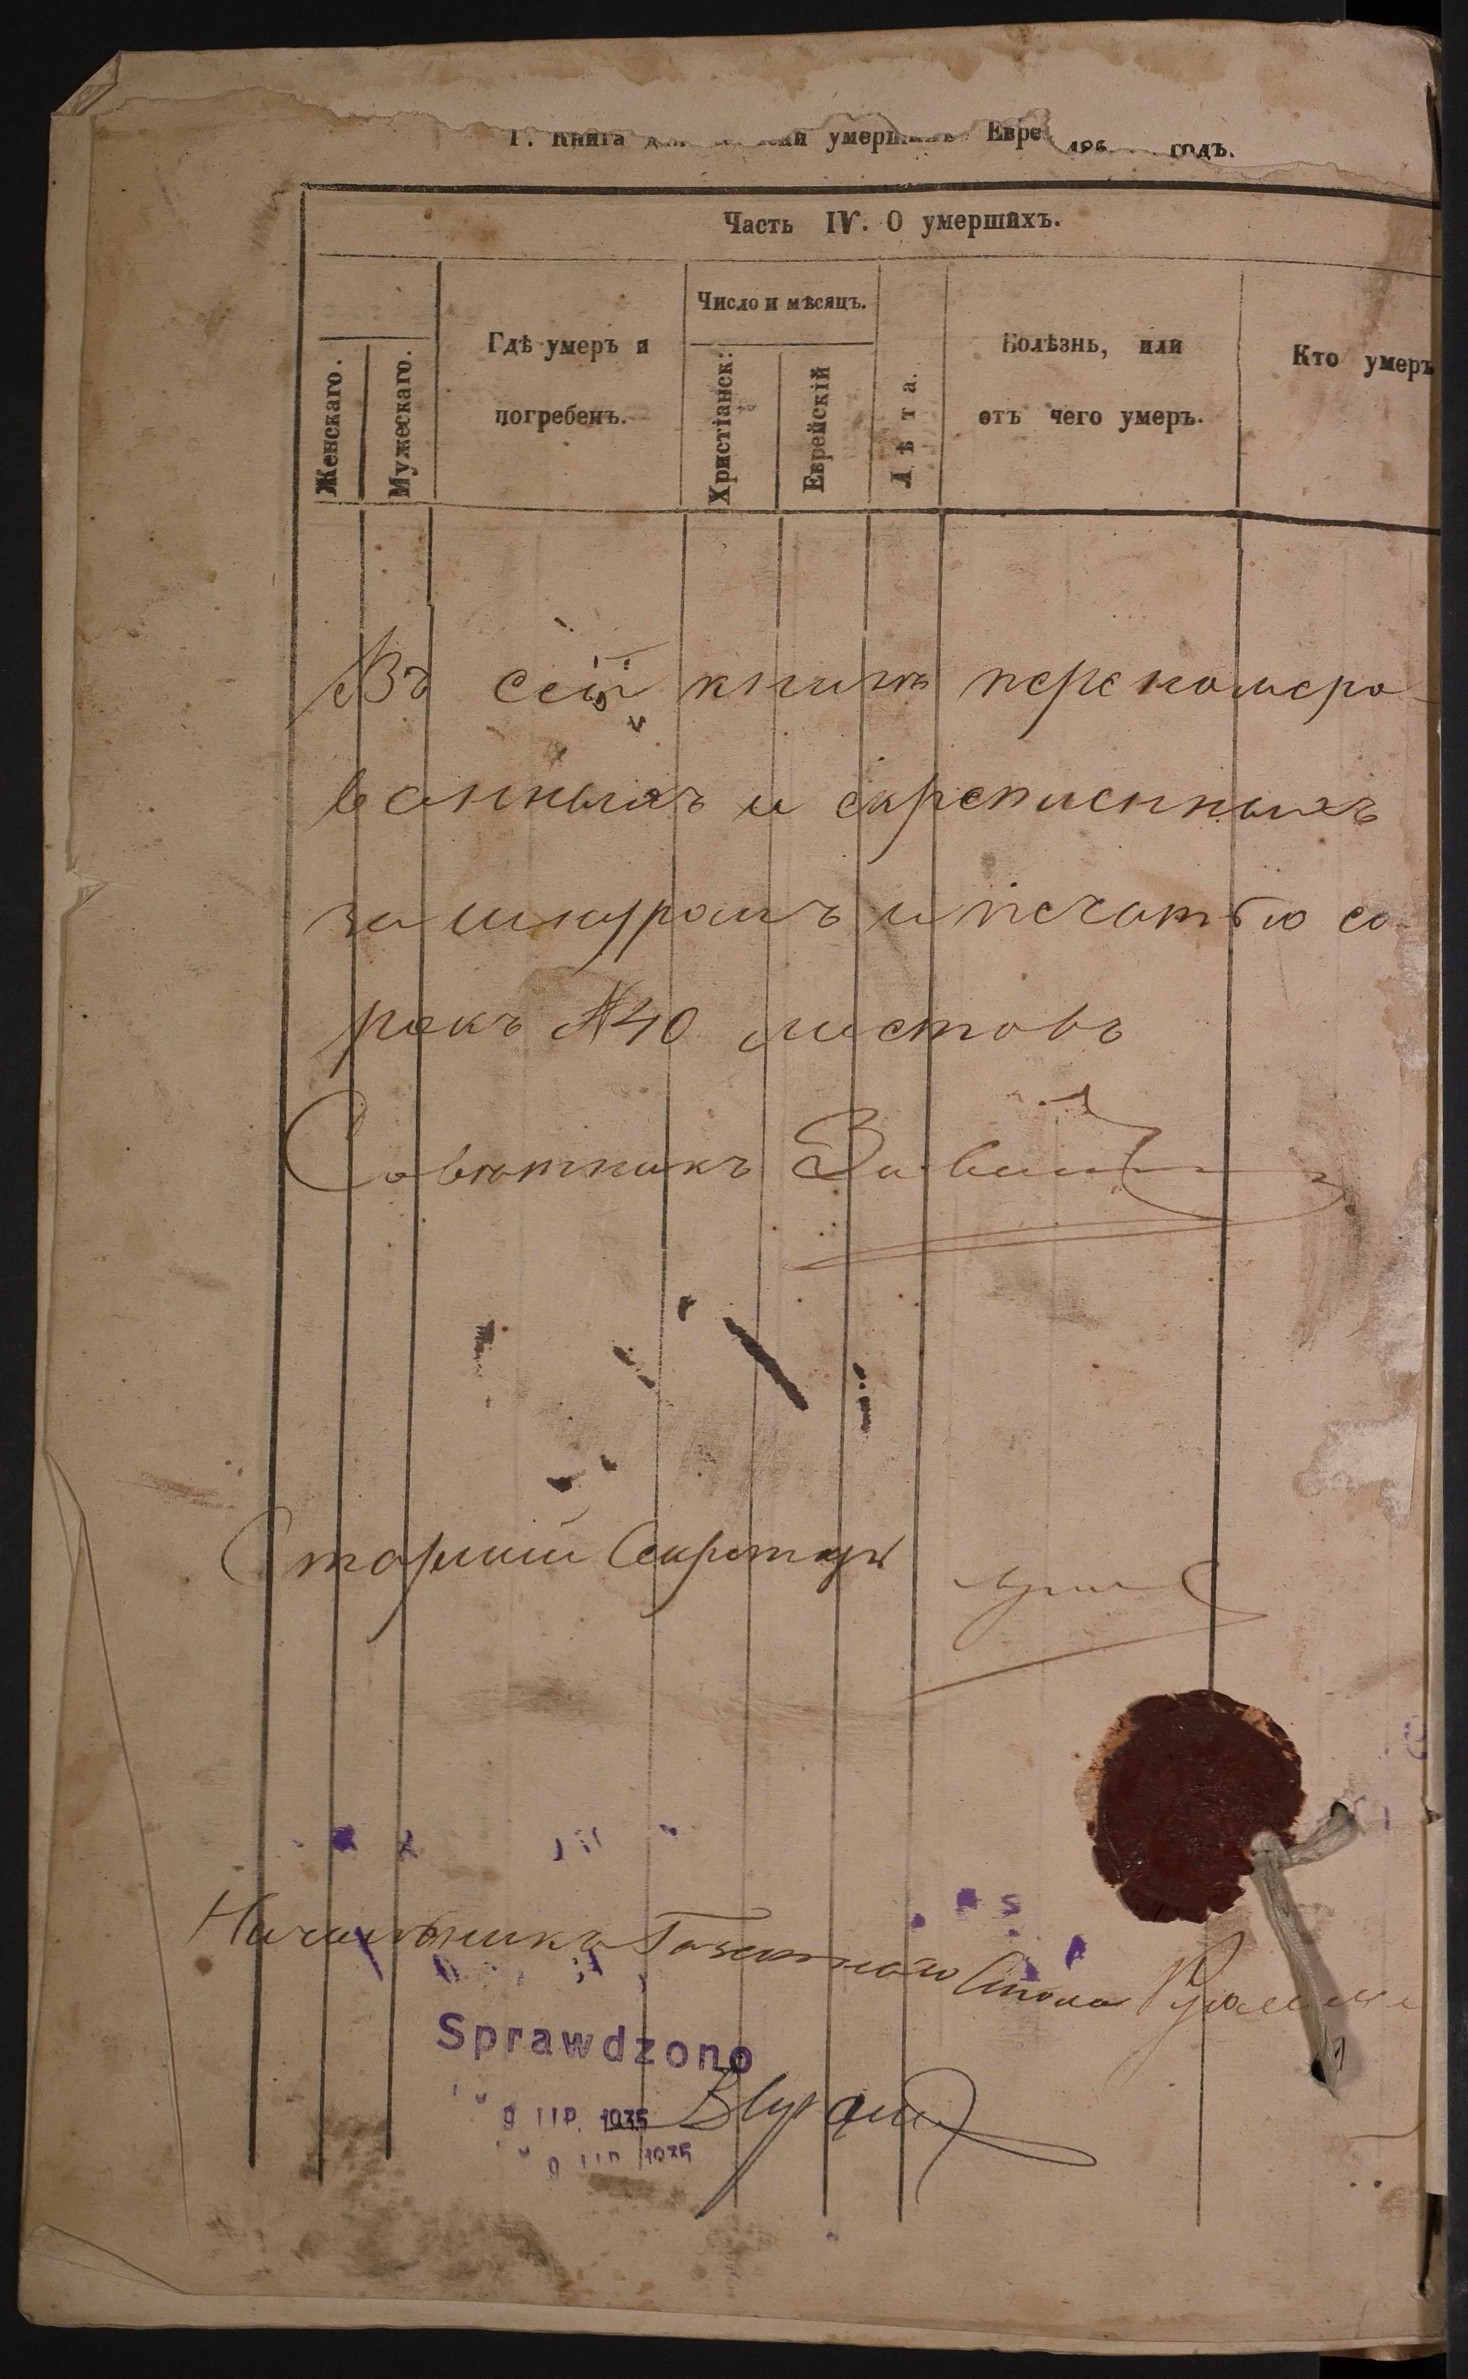 Г. Книга умершихъ Евре 186 годъ.
Часть IV. О умершихъ.
Женскаго.
Мужескаго.
Гдѣ умеръ и
погребенъ.
Число и мѣсяцъ.
Христіанск:
Еврейскій
Лѣта.
Болѣзнь, или
отъ чего умеръ.
Кто умеръ
Въ сей книгѣ перенумеро-
ванныхъ и скрепленныхъ
за шнуромъ и печатью со-
рокъ №40 листовъ
Совѣтникъ
Старшій Секретарь
Начальникъ Газетнаго Стола
Sprawdzono
9 1935
9 1935